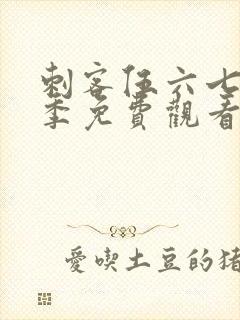 刺客伍六七
季免費觀看
愛喫土豆的猪